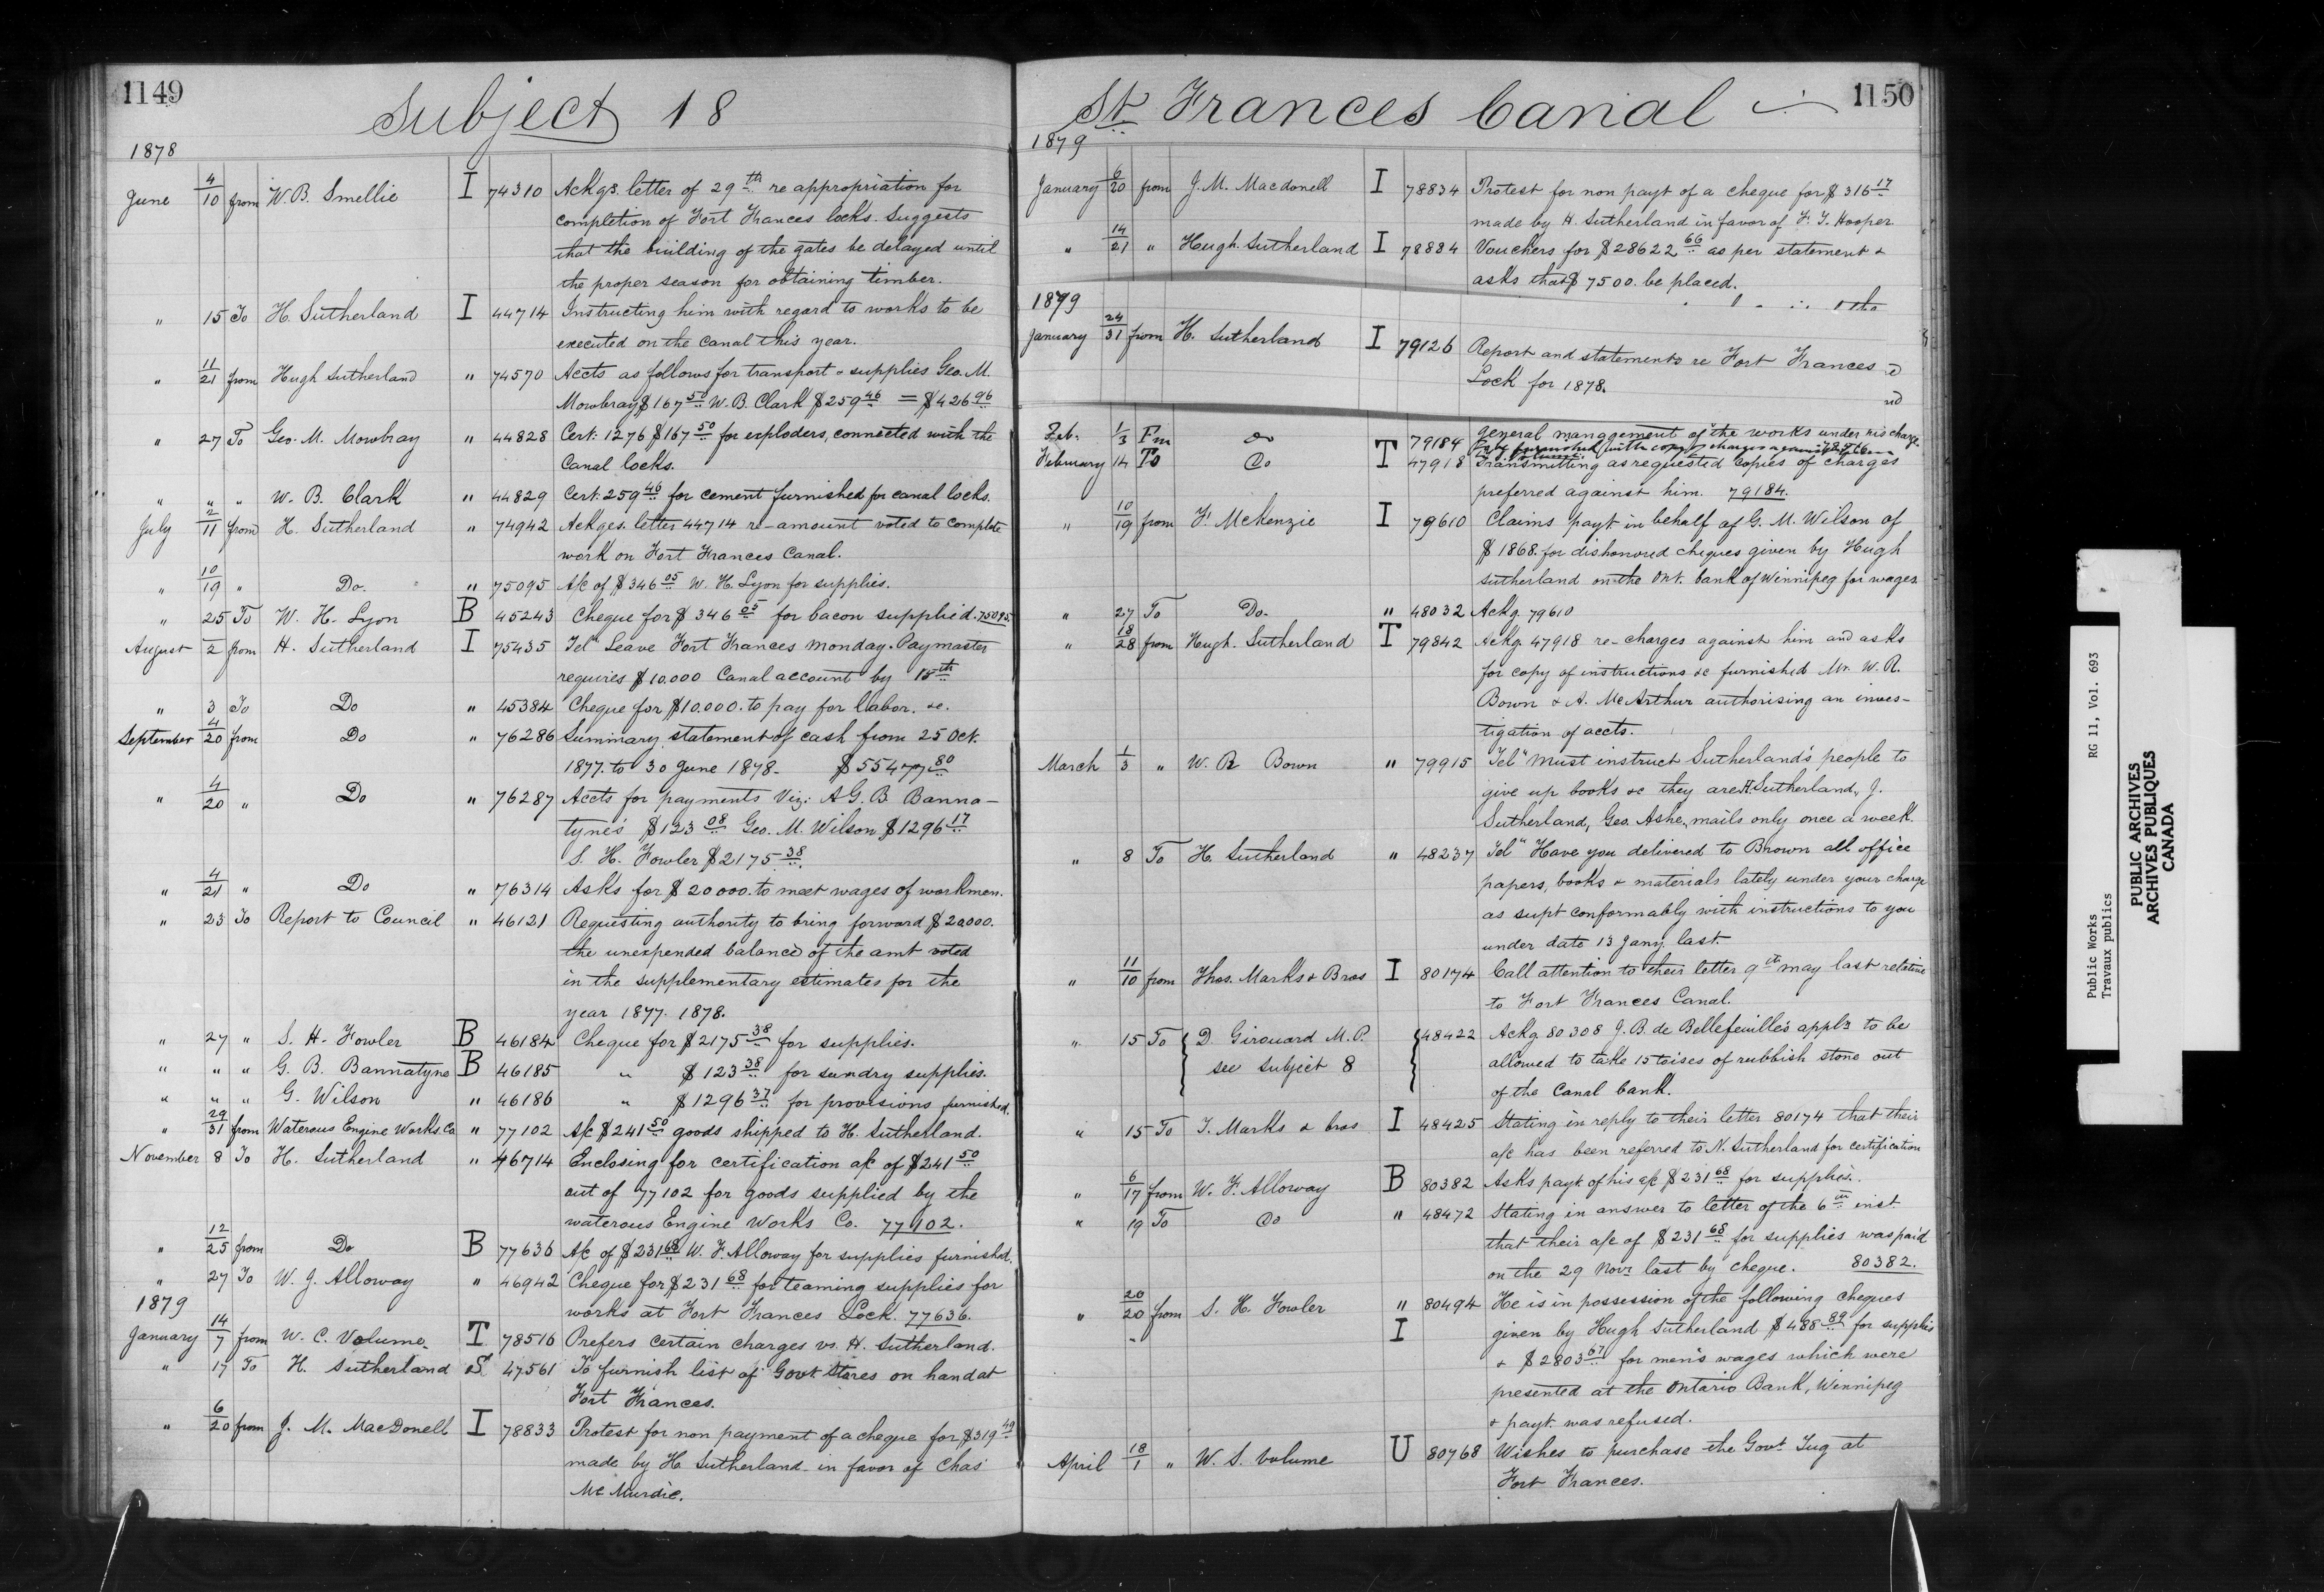 1149
Subject 18
1878
June 4/10 from W. B. Smellie I 74310 Ackgs. letter of 29th re appropriation for
completion of Fort Frances locks. Suggests
that the building of the gates be delayed until
the proper season for obtaining timber.
" 15 To H. Sutherland I 44714 Instructing him with regard to works to be
executed on the Canal this year.
" 11/21 from Hugh Sutherland " 74570 Accts as follows for transport & supplies Geo. M.
Mowbray $167 50 W. B. Clark $259 46 = $426 96
" 27 To Geo. M. Mowbray " 44828 Cert: 1276 $167 50 for exploders, connected with the
Canal locks.
" " " W. B. Clark " 44829 Cert: 259 46 for cement furnished for canal locks.
July 2/11 from H. Sutherland " 74942 Ackges. letter 44714 re-amount voted to complete
work on Fort Frances Canal.
" 10/19 " Do. " 75095 A/c of $346 05 W. H. Lyon for supplies.
" 25 To W. H. Lyon B 45243 Cheque for $346 05 for bacon supplied. 75095.
August /2 from H. Sutherland I 75435 Tel" Leave Fort Frances Monday. Paymaster
requires $10.000 Canal account by 15th
" 3 To Do " 45384 Cheque for $10.000. to pay for labor. &c.
September 4/20 from Do " 76286 Summary statement of cash from 25 Oct.
1877. to 30 June 1878. $55477 80
" 4/20 " Do " 76287 Accts for payments Viz: A G. B. Banna-
tyne's $123 08 Geo. M. Wilson $1296 17
S. H. Fowler $2175 38.
" 4/21 " Do " 76314 Asks for $20000. to meet wages of workmen.
" 23 To Report to Council " 46121 Requesting authority to bring forward $20000.
the unexpended balance of the amt voted
in the supplementary estimates for the
year 1877. 1878.
" 27 " S. H. Fowler B 46184 Cheque for $2175 38 for supplies.
" " " G. B. Bannatyne B 46185 " $123 38 for sundry supplies.
" " " G. Wilson " 46186 " $1296 37 for provisions furnished.
" 29/31 from Waterous Engine Works. Co " 77102 A/c $241 50 goods shipped to H. Sutherland.
November 8 To H. Sutherland " 46714 Enclosing for certification a/c of $241 50
out of 77102 for goods supplied by the
waterous Engine Works Co. 77102.
" 12/25 from Do B 77636 A/c of $231 68 W. F. Alloway for supplies furnished.
" 27 To W. J. Alloway " 46942 Cheque for $231 68 for teaming supplies for
works at Fort Frances Lock. 77636.
1879
January 14/7 from W. C. Volume. T 78516 Prefers certain charges vs. H. Sutherland.
" 17 To H. Sutherland S 47561 To furnish list of Govt. Stores on hand at
Fort Frances.
" 6/20 from J. M. MacDonell I 78833 Protest for non payment of a cheque for $319 49
made by H. Sutherland in favor of Chas
McMurdie.
St. Frances Canal
1150
1879
January 6/20 from J. M. Macdonell I 78834 Protest for non payt of a cheque for $316 17
made by H. Sutherland in favor of F. T. Hooper
" 14/21 " Hugh. Sutherland I 78884 Vouchers for $28622 66 as per statement &
asks that $7500. be placed.
1879
January 24/31 from H. Sutherland I 79126 Report and statements re Fort Frances
Lock for 1878.
Feb. 1/3 Fm do 79184 general management of the works under his charge
February 14 To Do T 47918 Transmitting as requested copies of charges
preferred against him. 79184.
" 10/19 from F. McKenzie I 79610 Claims payt. in behalf of G. M. Wilson of
$1868. for dishonored cheques given by Hugh
Sutherland on the Ont. bank of Winnipeg for wages
" 27 To Do. " 48032 Ackg. 79610
" 18/28 from Hugh. Sutherland T 79842 Ackg. 47918 re-charges against him and asks
for copy of instructions &c furnished Mr. W. R.
Bown & A. McArthur authorising an inves-
tigation of accts.
March 1/3 " W. R Bown " 79915 Tel" Must instruct Sutherland's people to
give up books &c they are H. Sutherland, J.
Sutherland, Geo. Ashe, mails only once a week.
" 8 To H. Sutherland " 48237 Tel" Have you delivered to Brown all office
papers, books & materials lately under your charge
as supt conformably with instructions to you
under date 13 Jany. last.
" 11/10 from Thos. Marks & Bros I 80174 Call attention to their letter 9th may last relative
to Fort Frances Canal.
" 15 To D. Girouard M. P. 48422 Ackg. 80308 J. B. de Bellefeuille's appln to be
see Subject 8 allowed to take 15 toises of rubbish stone out
of the Canal bank.
" 15 To T. Marks & bros I 48425 Stating in reply to their letter 80174 that their
a/c has been referred to N. Sutherland for certification
" 6/17 from W. F. Alloway B 80382 Asks payt. of his a/c $231 68 for supplies.
" 19 To Do " 48472 Stating in answer to letter of the 6th inst.
that their a/c of $231 68 for supplies was paid
on the 29 Novr last by cheque. 80382.
" 20/20 from S. H. Fowler " 80494 He is in possession of the following cheques
I given by Hugh Sutherland $488 89 for supplies
& $2803 67 for men's wages which were
presented at the Ontario Bank, Winnipeg
& payt. was refused.
April 18/1 " W. S. Volume U 80768 Wishes to purchase the Govt. Tug at
Fort Frances.
Public Works RG 11, Vol. 693
Travaux publics
PUBLIC ARCHIVES
ARCHIVES PUBLIQUES
CANADA